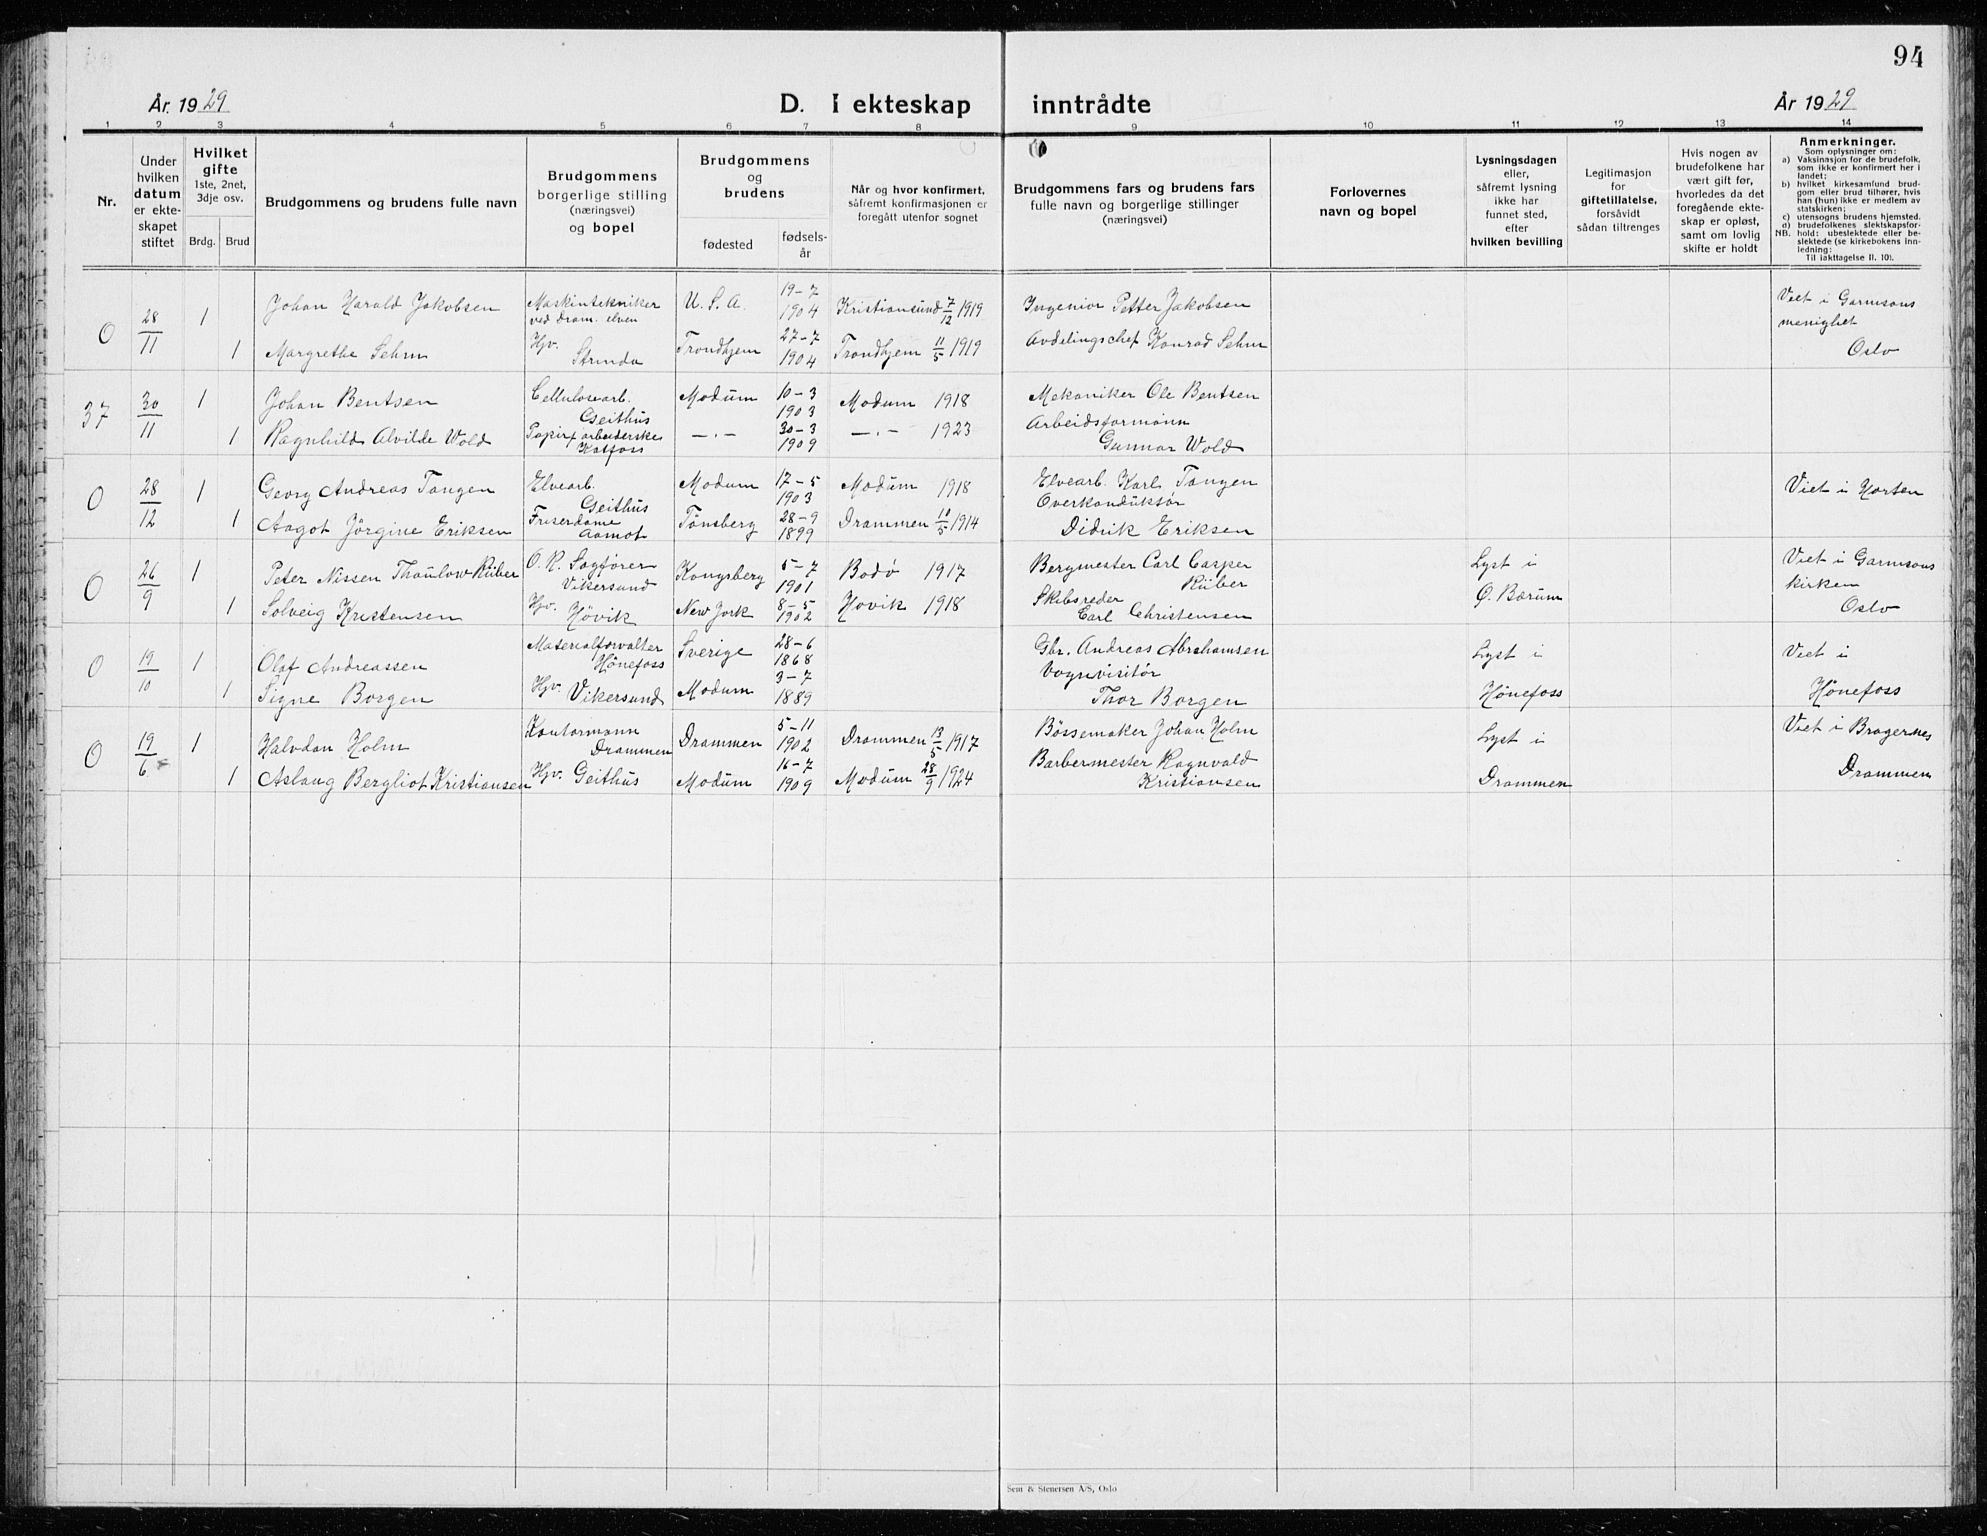 94
År 1929
D. I ekteskap inntrådte
År 1929
1 2 3 4 5 6 7 8 9 10 11 12 13 14
Nr.
Under hvilken datum er ekteskapet stiftet
Hvilket gifte
1ste, 2net, 3dje osv.
Brdg. Brud
Brudgommens og brudens fulle navn
Brudgommens borgerlige stilling (næringsvei) og bopel
Brudgommens og brudens
fødested
fødselsår
Når og hvor konfirmert, såfremt konfirmasjonen er foregått utenfor sognet
Brudgommens fars og brudens fars fulle navn og borgerlige stillinger (næringsvei)
Forlovernes navn og bopel
Lysningsdagen eller, såfremt lysning ikke har funnet sted, efter hvilken bevilling
Legitimasjon for giftetillatelse, forsåvidt sådan tiltrenges
Hvis nogen av brudefolkene har vært gift før, hvorledes da det foregående ekteskap er opløst, samt om lovlig skifte er holdt
Anmerkninger.
Som oplysninger om:
a) Vaksinasjon for de brudefolk, som ikke er konfirmert her i landet;
b) hvilket kirkesamfund brudgom eller brud tilhører, hvis han (hun) ikke er medlem av statskirken;
c) utensogns brudens hjemsted.
d) brudefolkenes slektskapsforhold: ubeslektede eller beslektede (se kirkebokens innledning;
NB.
Til iakttagelse II. 10).
O 28/11 1 Johan Harald Jakobsen Maskintekniker ved Dram. elven U. S. A. 19-7 1904 Kristiansund 7/12 1919 Ingeniør Petter Jakobsen Viet i Garnisons menighet Oslo
1 Margrethe Sehm Hjv. Strinda Trondhjem 27-7 1904 Trondhjem 11/5 1919 Avdelingschef Konrad Sehm
37 30/11 1 Johan Bentsen Cellulosearb. Geithus Modum 10-3 1903 Modum 1918 Mekaniker Ole Bentsen
1 Ragnhild Alvilde Wold Papirarbeiderske Katfoss —"— 30-3 1909 —"— 1923 Arbeidsformann Gunnar Wold
O 28/12 1 Georg Andreas Tangen Elvearb. Geithus Modum 17-5 1903 Modum 1918 Elvearb. Karl Tangen Viet i Horten
1 Aagot Jörgine Eriksen Friserdame Aamot Tønsberg 28-9 1899 Drammen 10/5 1914 Overkonduktør Didrik Eriksen
O 26/9 1 Peter Nissen Thaulow Rüber O. R. Sagfører Vikersund Kongsberg 5-7 1901 Bodø 1917 Bergmester Carl Casper Rüber Lyst i Ø. Bærum Viet i Garnisons kirken Oslo
1 Solveig Kristensen Hjv. Hövik New Jork 8-5 1902 Hovik 1918 Skibsreder Carl Christensen
O 19/10 1 Olaf Andreassen Materialforvalter Hönefoss Sverige 28-6 1868 Gbr. Andreas Abrahamsen Lyst i Hönefoss Viet i Hönefoss
1 Signe Borgen Hjv. Vikersund Modum 3-7 1889 Vognvisitör Thor Borgen
O 19/6 1 Halvdan Holm Kontormann Drammen Drammen 5-11 1902 Drammen 13/5 1917 Bössemaker Johan Holm Lyst i Drammen Viet i Bragernes Drammen
1 Aslaug Bergliot Kristiansen Hjv. Geithus Modum 16-7 1909 Modum 28/9 1924 Barbermester Ragnvald Kristiansen
Sem & Stenersen A/S, Oslo